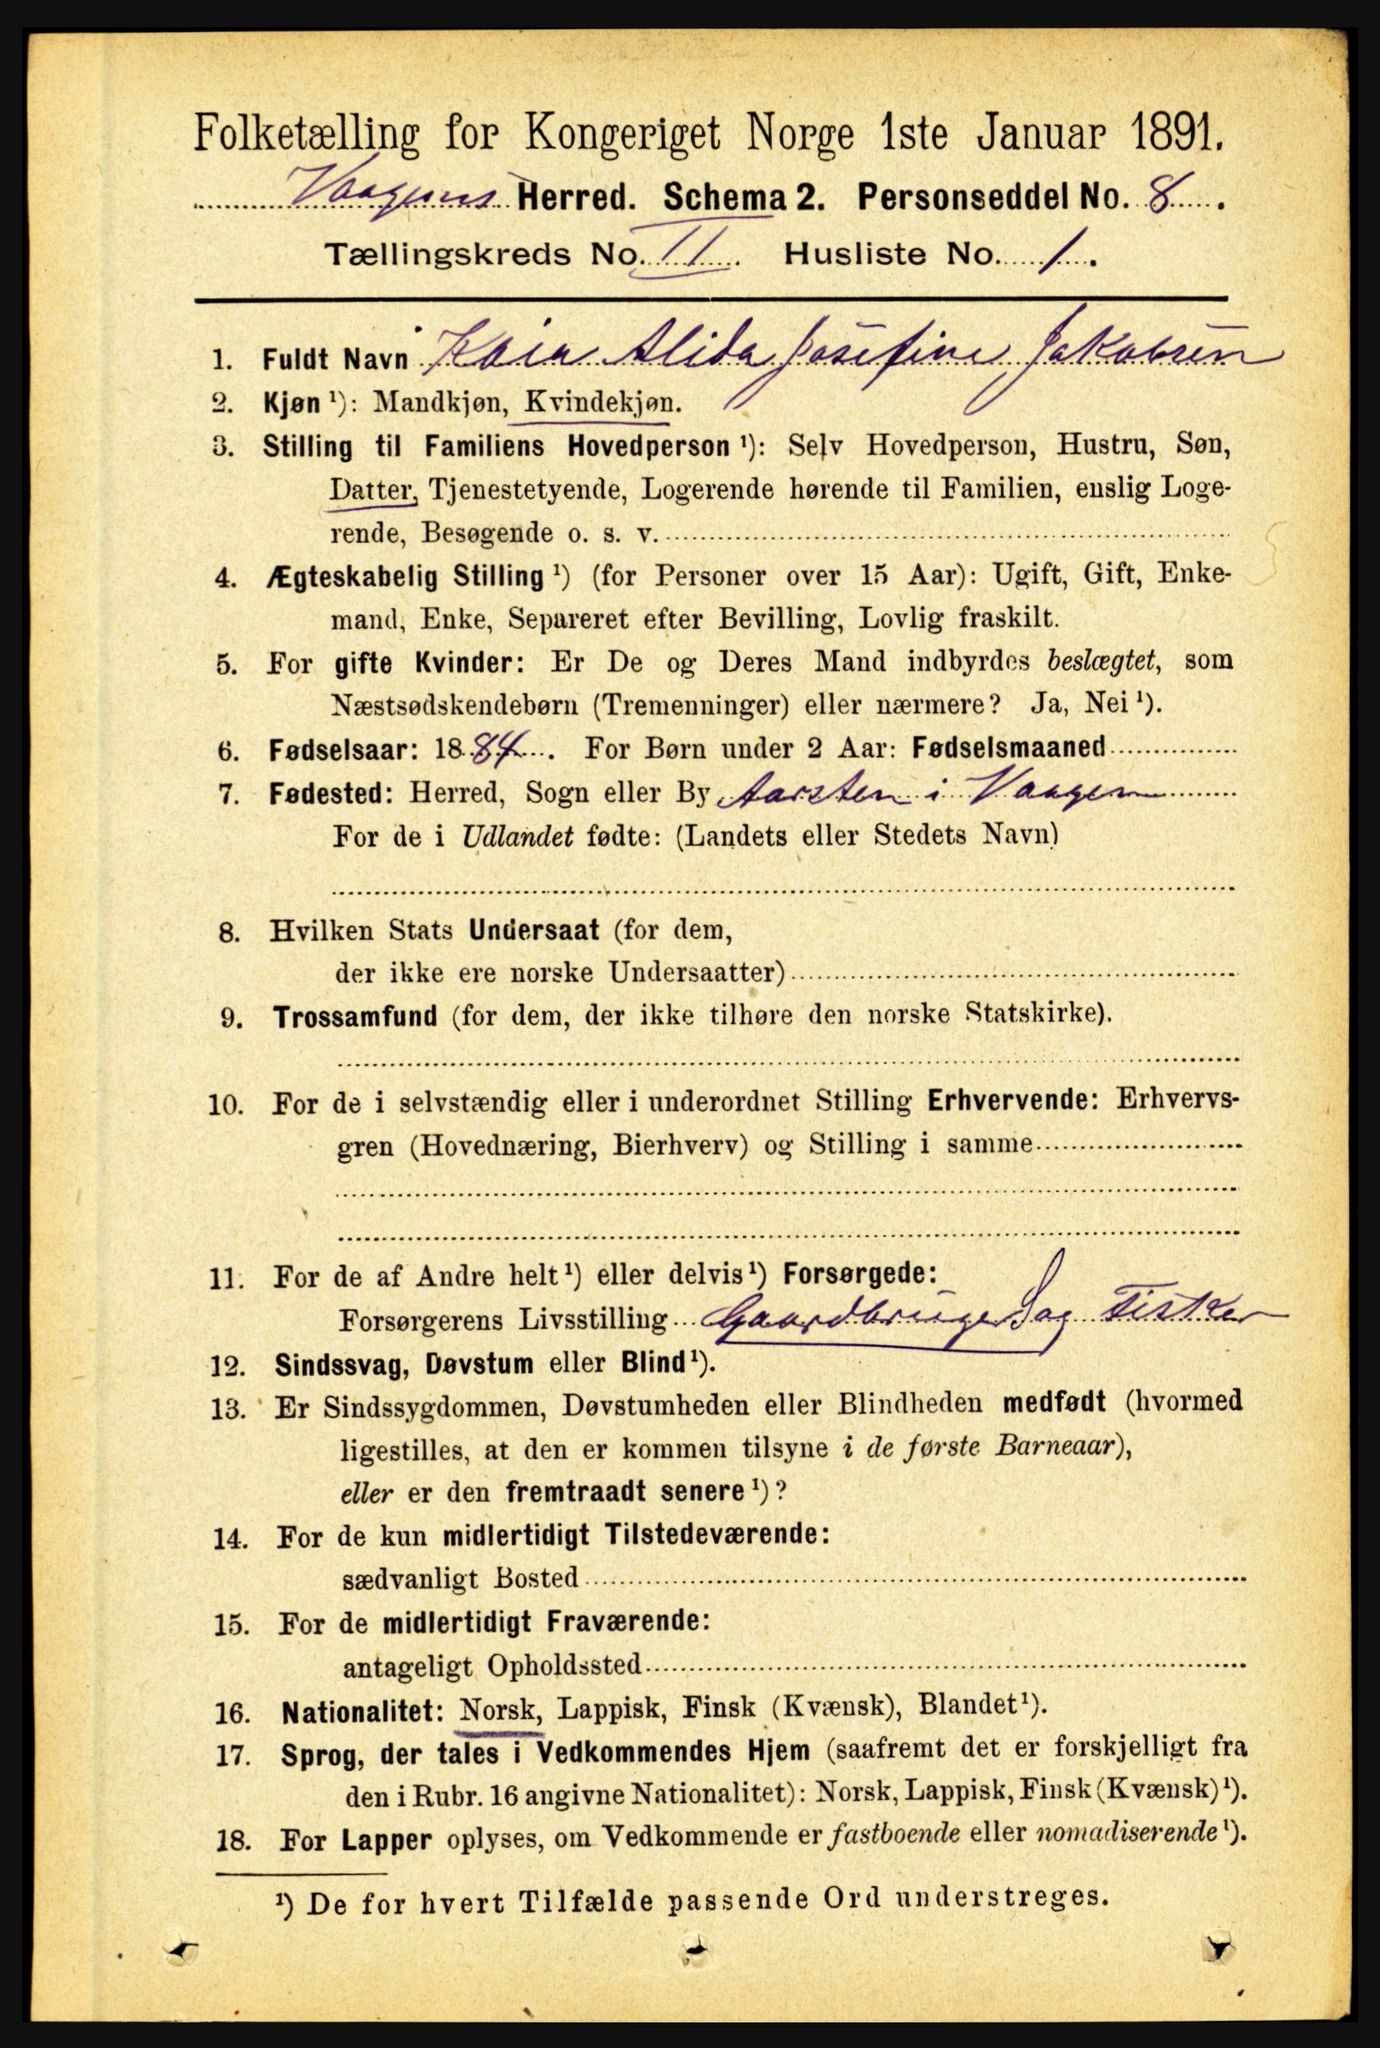 Folketælling for Kongeriget Norge 1ste Januar 1891.
Vaagens Herred. Schema 2. Personseddel No. 8.
Tællingskreds No. II. Husliste No. 1.
1. Fuldt Navn Kaia Alida Josefine Jakobsen
2. Kjøn ¹): Mandkjøn, Kvindekjøn.
3. Stilling til Familiens Hovedperson ¹): Selv Hovedperson, Hustru, Søn,
Datter, Tjenestetyende, Logerende hørende til Familien, enslig Loge-
rende, Besøgende o. s. v.
4. Ægteskabelig Stilling ¹) (for Personer over 15 Aar): Ugift, Gift, Enke-
mand, Enke, Separeret efter Bevilling, Lovlig fraskilt.
5. For gifte Kvinder: Er De og Deres Mand indbyrdes beslægtet, som
Næstsødskendebørn (Tremenninger) eller nærmere? Ja, Nei ¹).
6. Fødselsaar: 1884. For Børn under 2 Aar: Fødselsmaaned
7. Fødested: Herred, Sogn eller By Aarsten i Vaagen
For de i Udlandet fødte: (Landets eller Stedets Navn)
8. Hvilken Stats Undersaat (for dem,
der ikke ere norske Undersaatter)
9. Trossamfund (for dem, der ikke tilhøre den norske Statskirke).
10. For de i selvstændig eller i underordnet Stilling Erhvervende: Erhvervs-
gren (Hovednæring, Bierhverv) og Stilling i samme
11. For de af Andre helt ¹) eller delvis ¹) Forsørgede:
Forsørgerens Livsstilling Gaardbruger og Fisker
12. Sindssvag, Døvstum eller Blind ¹).
13. Er Sindssygdommen, Døvstumheden eller Blindheden medfødt (hvormed
ligestilles, at den er kommen tilsyne i de første Barneaar),
eller er den fremtraadt senere ¹)?
14. For de kun midlertidigt Tilstedeværende:
sædvanligt Bosted
15. For de midlertidigt Fraværende:
antageligt Opholdssted
16. Nationalitet: Norsk, Lappisk, Finsk (Kvænsk), Blandet ¹).
17. Sprog, der tales i Vedkommendes Hjem (saafremt det er forskjelligt fra
den i Rubr. 16 angivne Nationalitet): Norsk, Lappisk, Finsk (Kvænsk) ¹).
18. For Lapper oplyses, om Vedkommende er fastboende eller nomadiserende ¹).
¹) De for hvert Tilfælde passende Ord understreges.